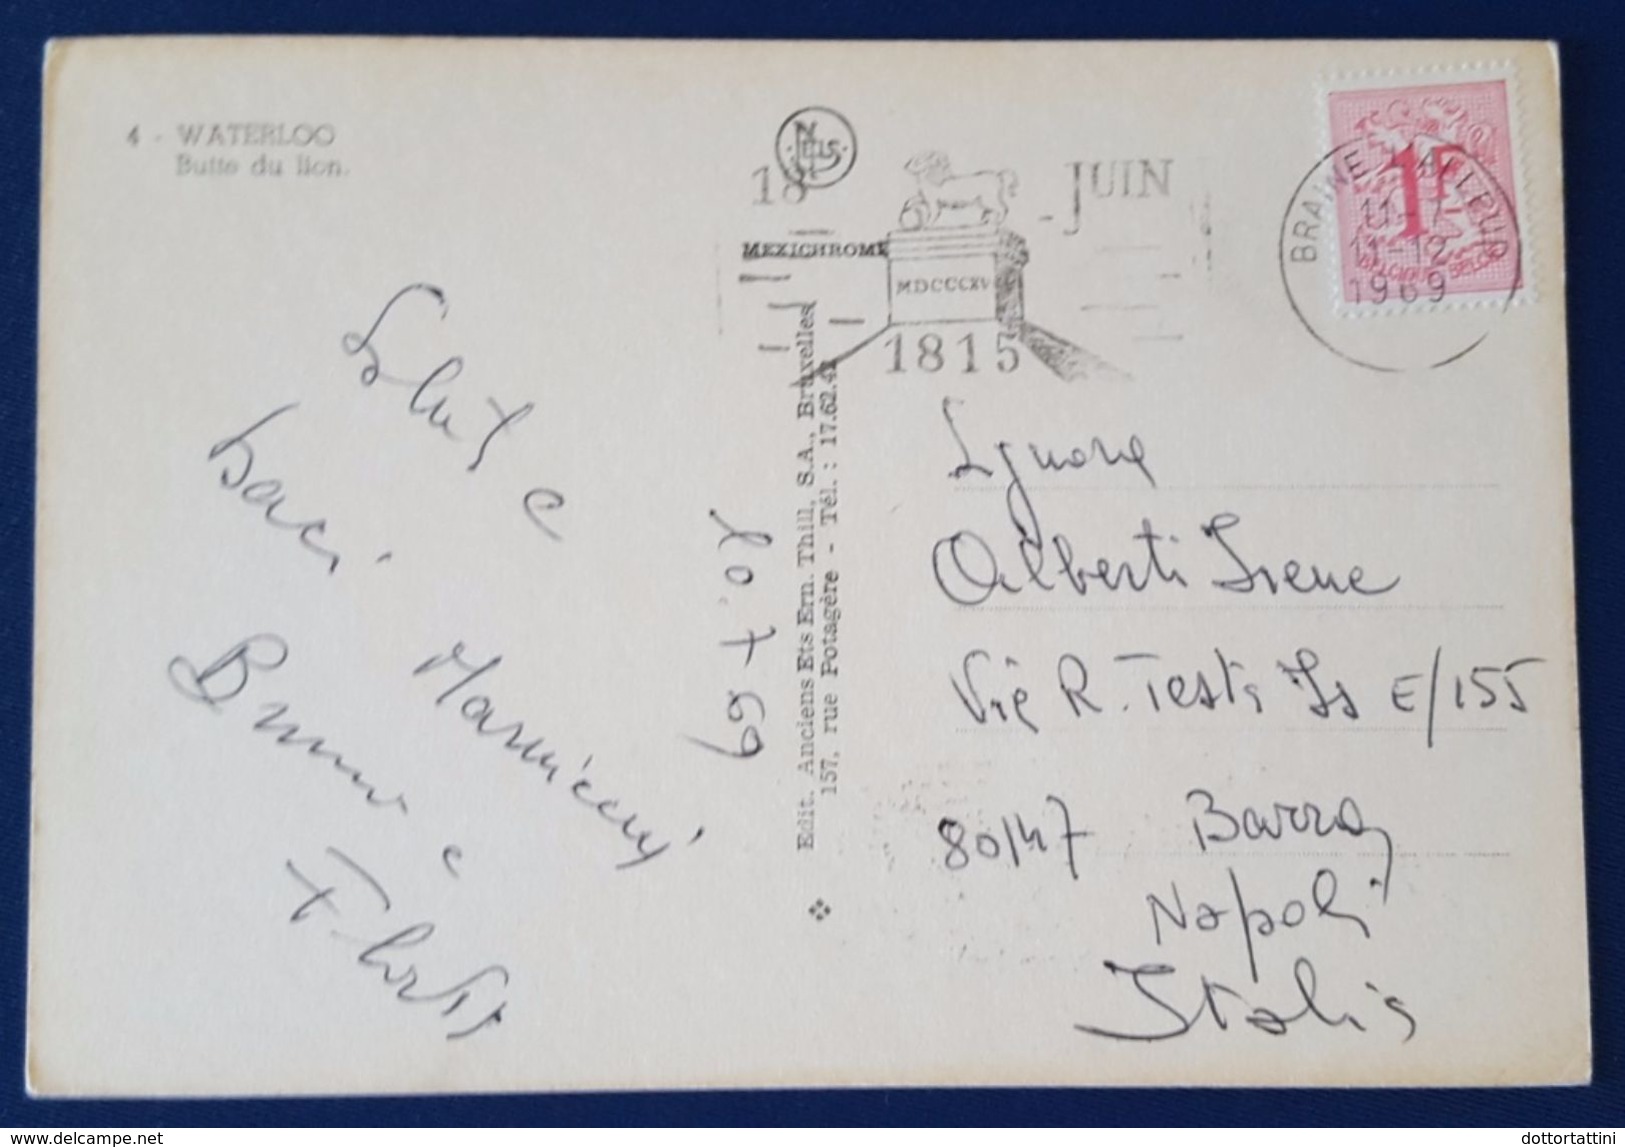 4 - WATERLOO
Butte du lion.
NELS
18
JUIN
MEXICHROME
MDCCCXV
1815
BRAINE L'ALLEUD
11-7
11-12
1969
1F
BELGIQUE-BELGIE
Edit. Anciens Ets Ern. Thill, S.A., Bruxelles
157, rue Potagère - Tél. : 17.62.42
Saluti e
baci
Bruno e
10.7.69
Signora
Alberti Irene
Via R. Testi Is E/155
80147 Barra
Napoli
Italia
www.delcampe.net
dottortattini